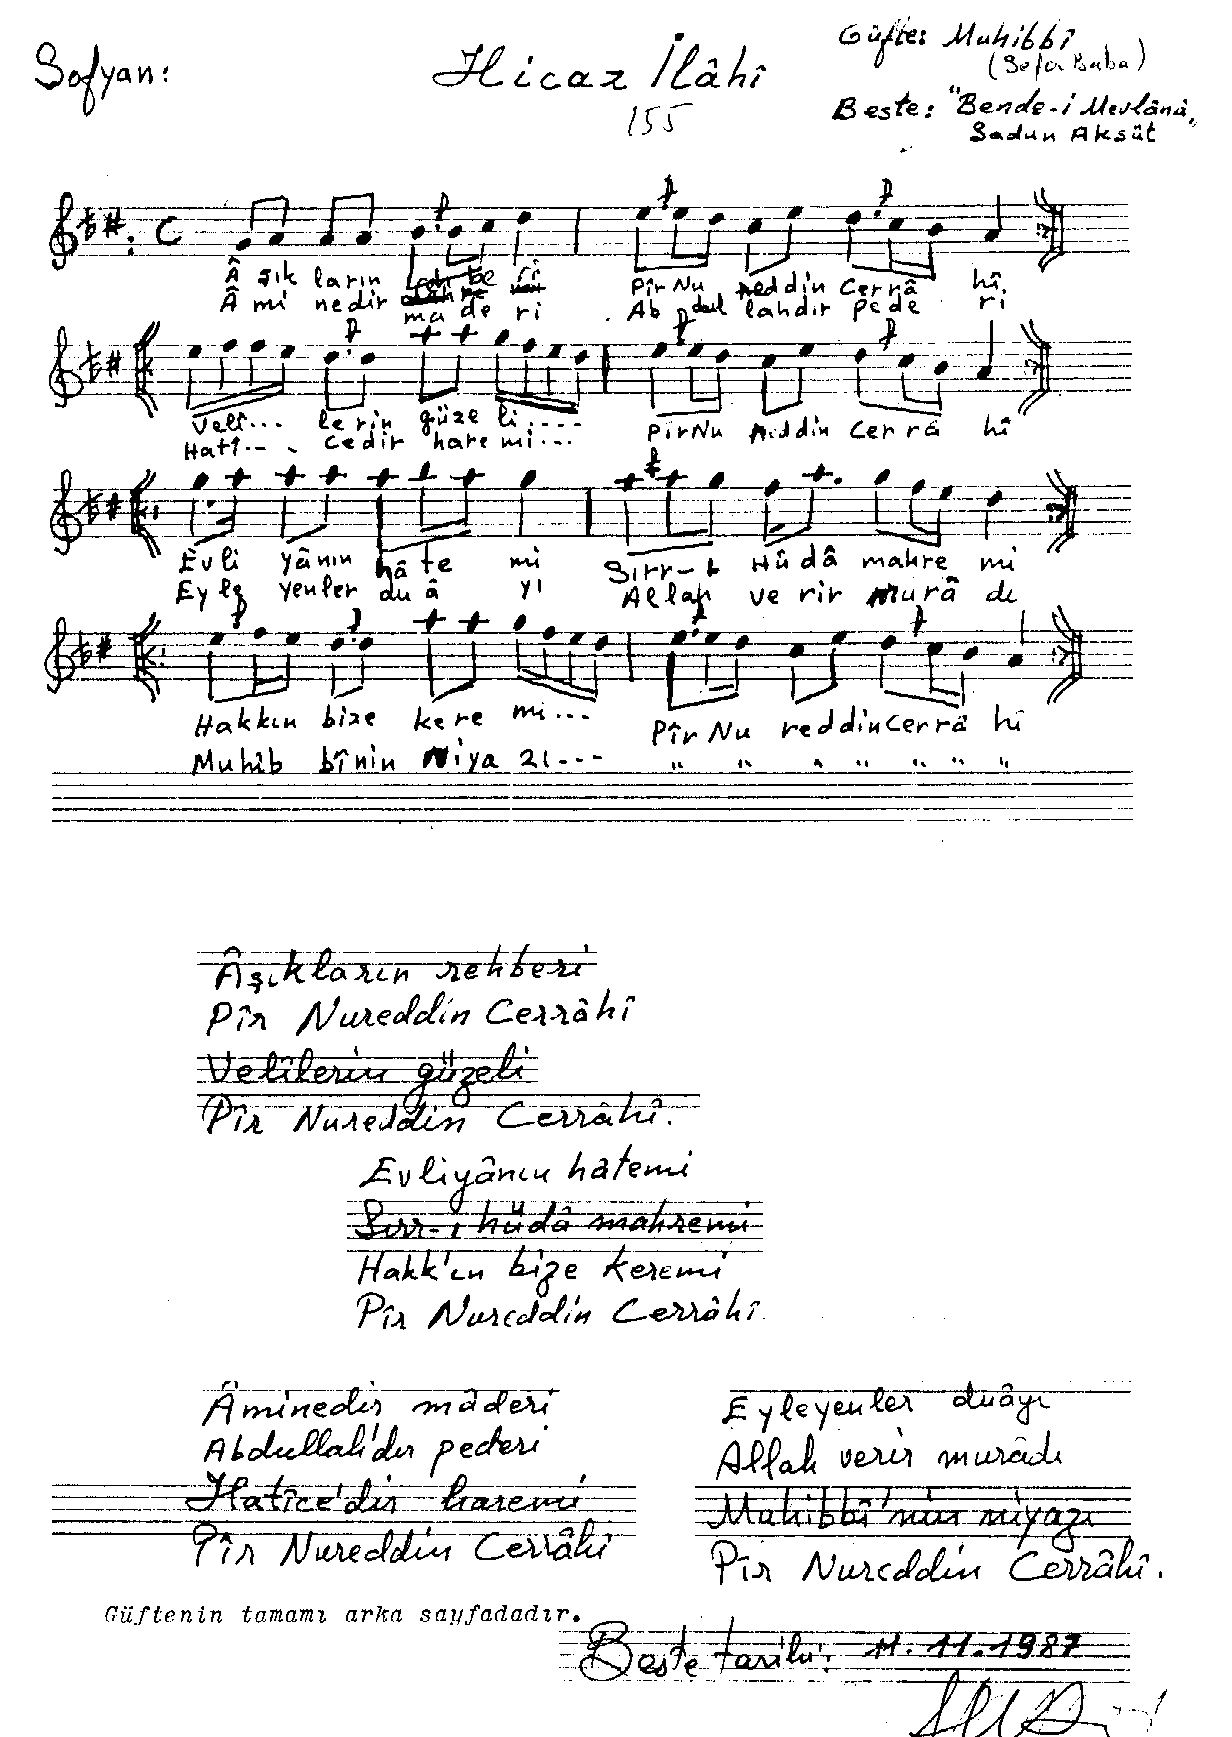 Sofyan:
Hicaz İlâhî
155
Güfte: Muhibbî
(Sefer Baba)
Beste: "Bende-i Mevlânâ"
Sadun Aksüt
Â şık ların reh be ri Pîr Nu reddin Cerrâ hî.
Â mi nedir mâ de ri Ab dul lahdır pede ri
Velî... lerin güze li.... Pîr Nu reddin Cer râ hî
Hatî.-. Cedir hare mi... 
Evli yânın hâ te mi Sırr-ı Hüdâ mahre mi
Eyle yenler du â yı Allah ve rir murâ dı
Hakkın bize kere mi... Pîr Nu reddin Cerrâ hî
Muhib bînin Niya zı--- " " " " " " "
Âşıkların rehberi
Pîr Nureddin Cerrâhî
Velîlerin güzeli
Pîr Nureddin Cerrâhî.
Evliyânın hâtemi
Sırr-ı hüdâ mahremi
Hakk'ın bize keremi
Pîr Nureddin Cerrâhî.
Âminedir mâderi
Abdullah'dır pederi
Hatîce'dir haremi
Pîr Nureddin Cerrâhî
Eyleyenler duâyı
Allah verir murâdı
Muhibbî'nin niyazı
Pîr Nureddin Cerrâhî.
Güftenin tamamı arka sayfadadır.
Beste tarihi: 11.11.1987